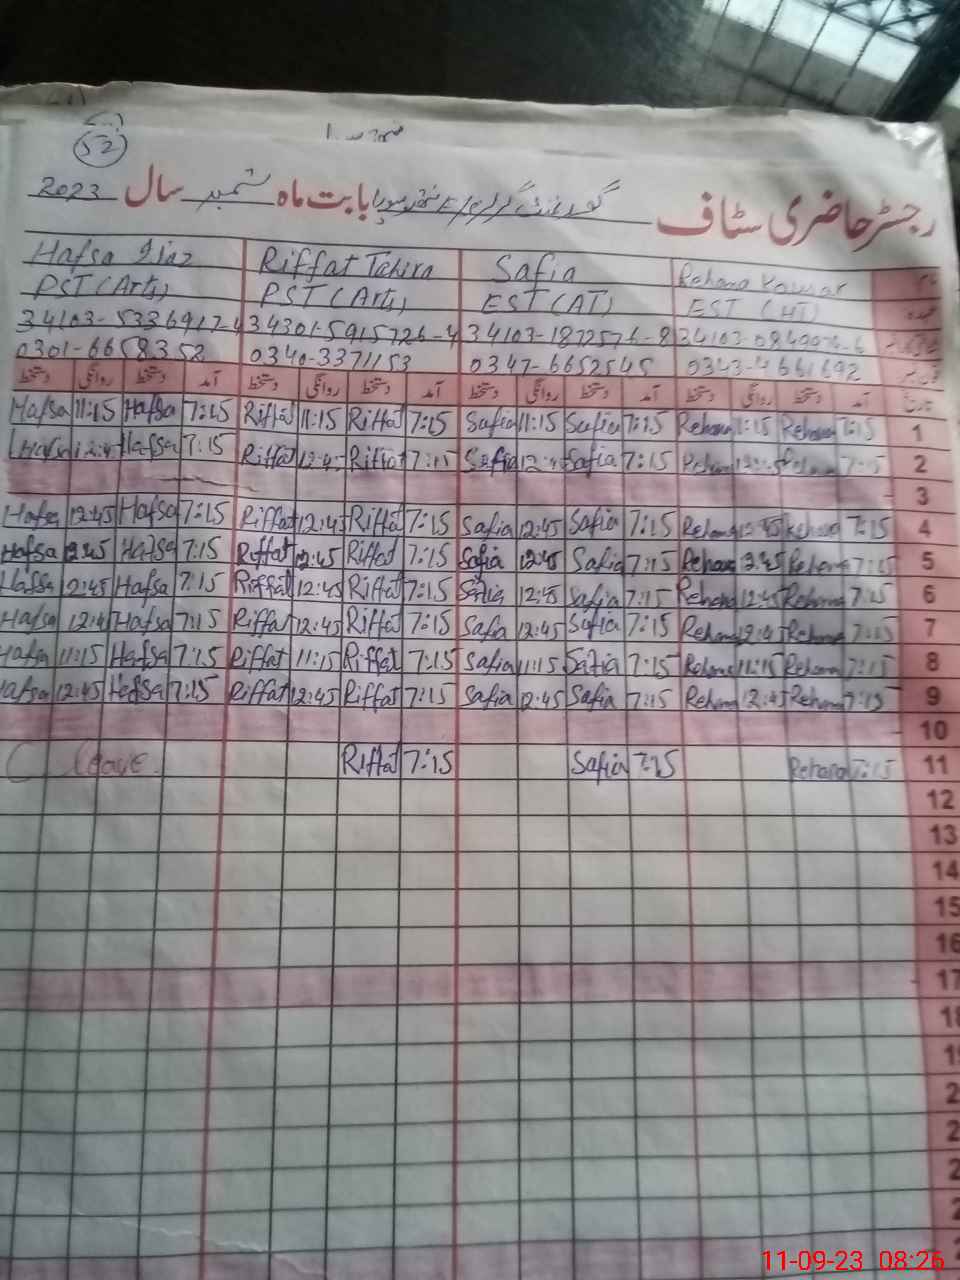 52
رجسٹر حاضری سٹاف گورنمنٹ گرلز بابت ماہ ستمبر سال 2023
Hafsa Ijaz Riffat Tahira Safia Rehana Kousar نام
PST (Arts) PST (Arts) EST (AT) EST (HT) عہدہ
34103-5336917-4 34301-5915726-4 34103-1872576-8
0301-6658352 0340-3371153 0347-6652545 0343-4661692
دستخط روانگی دستخط آمد دستخط روانگی دستخط آمد دستخط روانگی دستخط آمد دستخط روانگی دستخط آمد تاریخ
Hafsa 11:15 Hafsa 7:15 Riffat 11:15 Riffat 7:15 Safia 11:15 Safia 7:15 Rehana 11:15 Rehana 7:15 1
Hafsa 12:45 Hafsa 7:15 Riffat 12:45 Riffat 7:15 Safia 12:45 Safia 7:15 Rehana 12:45 Rehana 7:15 2
3
Hafsa 12:45 Hafsa 7:15 Riffat 12:45 Riffat 7:15 Safia 12:45 Safia 7:15 Rehana 12:45 Rehana 7:15 4
Hafsa 12:45 Hafsa 7:15 Riffat 12:45 Riffat 7:15 Safia 12:45 Safia 7:15 Rehana 12:45 Rehana 7:15 5
Hafsa 12:45 Hafsa 7:15 Riffat 12:45 Riffat 7:15 Safia 12:45 Safia 7:15 Rehana 12:45 Rehana 7:15 6
Hafsa 12:45 Hafsa 7:15 Riffat 12:45 Riffat 7:15 Safia 12:45 Safia 7:15 Rehana 12:45 Rehana 7:15 7
Hafsa 11:15 Hafsa 7:15 Riffat 11:15 Riffat 7:15 Safia 11:15 Safia 7:15 Rehana 11:15 Rehana 7:15 8
Hafsa 12:45 Hafsa 7:15 Riffat 12:45 Riffat 7:15 Safia 12:45 Safia 7:15 Rehana 12:45 Rehana 7:15 9
10
C Leave Riffat 7:15 Safia 7:15 Rehana 7:15 11
12
13
14
15
16
17
18
11-09-23 08:26